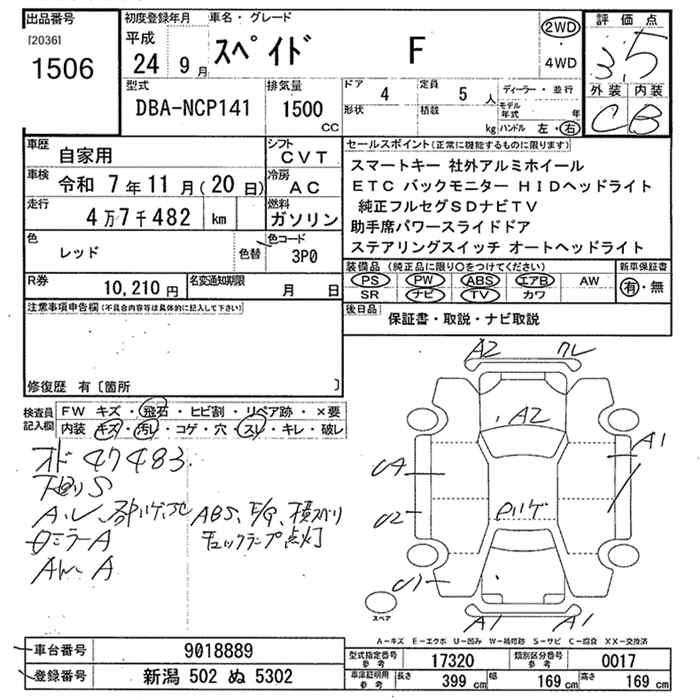 出品番号
[2036]
1506
初度登録年月
車名・グレード
平成
24年9月
スペイド F
2WD
・
4WD
評価点
3.5
外装 内装
C B
型式
DBA-NCP141
排気量
1500
CC
ドア
4
定員
5人
形状
積載
kg
ディーラー・並行
モデル年式
年
ハンドル 左・右
車歴
自家用
シフト
CVT
車検
令和7年11月(20日)
冷房
AC
走行
4万7千482 km
燃料
ガソリン
色
レッド
色替
色コード
3P0
R券
10,210円
名変通知期限
月 日
セールスポイント(正常に機能するものに限ります)
スマートキー 社外アルミホイール
ETC バックモニター HIDヘッドライト
純正フルセグSDナビTV
助手席パワースライドドア
ステアリングスイッチ オートヘッドライト
装備品(純正品に限り○をつけてください)
新車保証書
PS PW ABS エアB AW
有・無
SR ナビ TV カワ
後日品
保証書・取説・ナビ取説
注意事項申告欄(不具合内容等は具体的に記入して下さい)
修復歴 有〔箇所 〕
検査員記入欄
FW キズ・飛石・ヒビ割・リペア跡・×要
内装 キズ・汚レ・コゲ・穴・スレ・キレ・破レ
オド 47483
下回りS
ABS、E/G、横スベリ
チェックランプ点灯
ミラーA
A
A2
A2
A1
U2
U1
A1
A1
スペア
A-キズ E-エクボ U-凹み W-補修跡 S-サビ C-腐食 XX-交換済
車台番号
9018889
登録番号
新潟 502 ぬ 5302
型式指定番号
参考
17320
類別区分番号
参考
0017
車庫証明用
参考
長さ
399 cm
幅
169 cm
高さ
169 cm